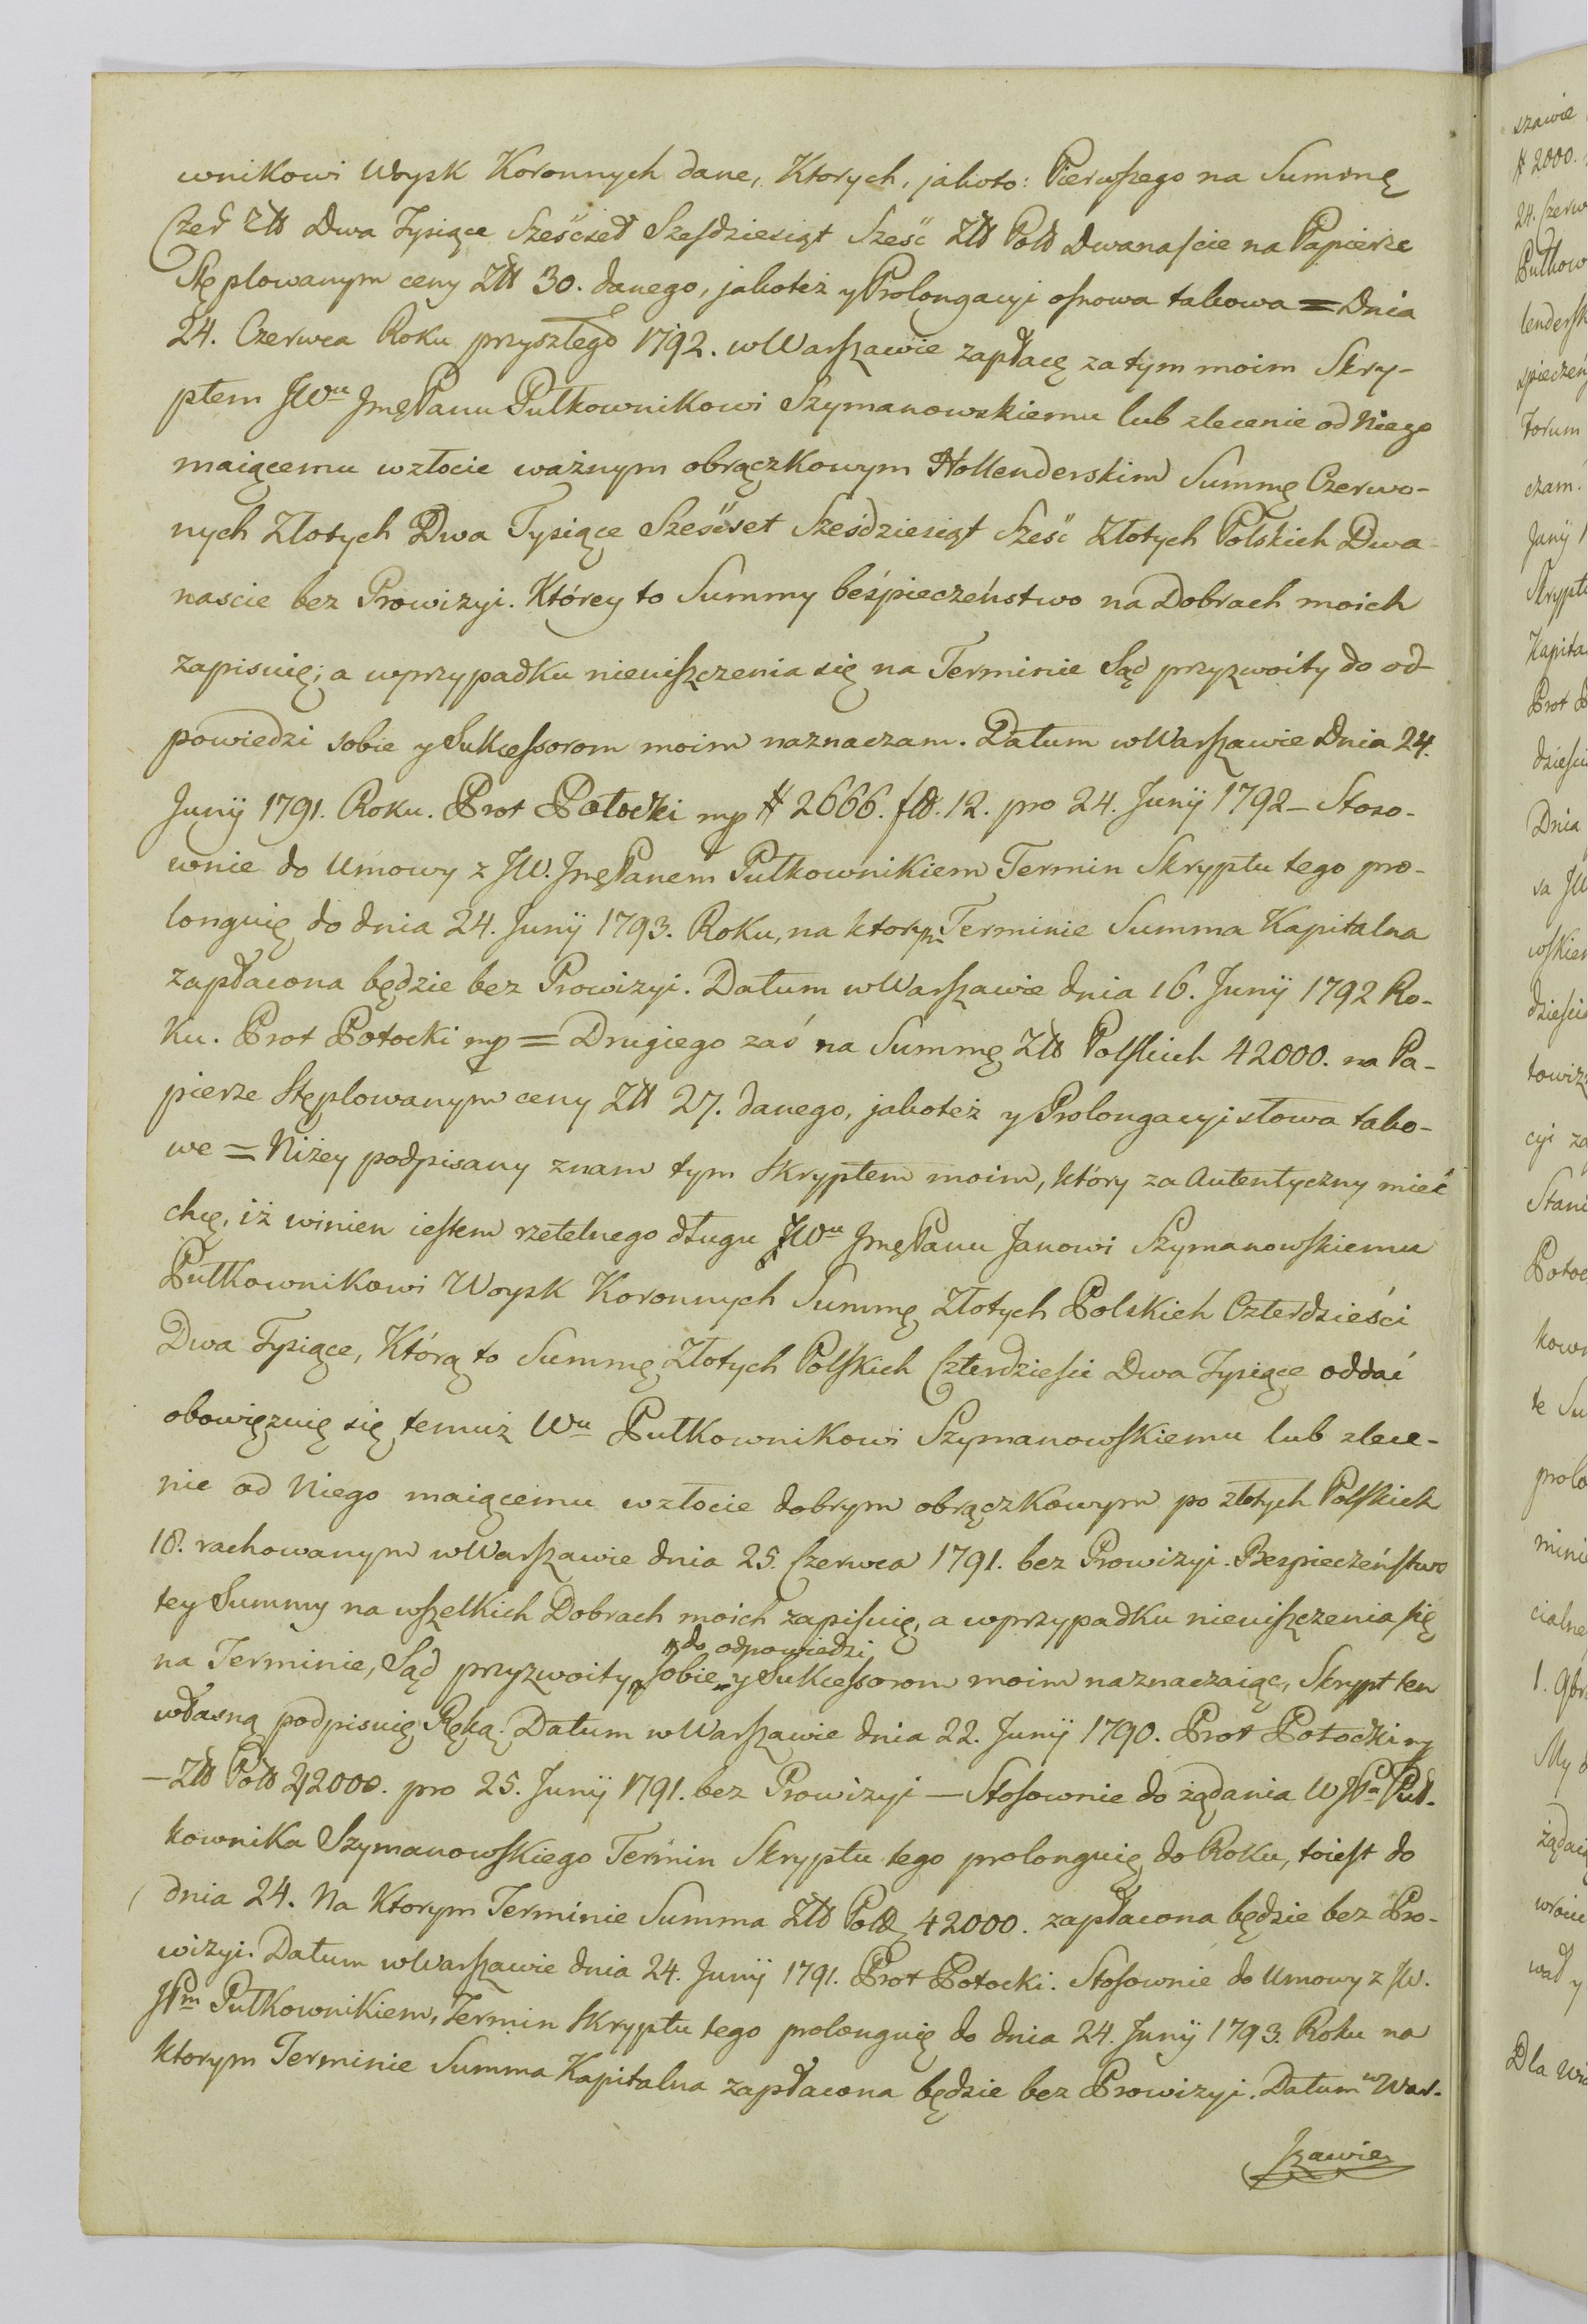 wnikowi Woysk Koronnych dane, Ktorych, jakoto: Pierwszego na Summę
Czer Złł Dwa Tysiące Sześćset Szesdziesiąt Sześć Złł Poll Dwanascie na Papierze
Stęplowanym ceny Złł 30. danego, jakoteż y Prolongacyi osnowa takowa = Dnia
24. Czerwca Roku przyszłego 1792. w Warszawie zapłacę za tym moim Skry-
ptem JWu Jmę Panu Pułkownikowi Szymanowskiemu lub zlecenie od Niego
maiącemu wzłocie ważnym obrączkowym Hollenderskim Summę Czerwo-
nych Złotych Dwa Tysiące Sześćset Sześdziesiąt Sześć Złotych Polskich Dwa-
nascie bez Prowizyi. Którey to Summy beśpieczeństwo na Dobrach moich
zapisuię; a wprzypadku nieuiszczenia się na Terminie Sąd przyzwoity do od-
powiedzi sobie y Sukcessorom moim naznaczam. Datum w Warszawie Dnia 24.
Junÿ 1791. Roku. Prot Potocki mp # 2666. fll. 12. pro 24. Junÿ 1792 – Stoso-
wnie do Umowy z JW. Jmę Panem Pułkownikiem Termin Skryptu tego pro-
longuię do dnia 24. Junÿ 1793. Roku, na ktorym Terminie Summa Kapitalna
zapłacona będzie bez Prowizyi. Datum w Warszawie dnia 16. Junÿ 1792 Ro-
ku. Prot Potocki mp = Drugiego zaś na Summę Złł Polskich 42000. na Pa-
pierze Stęplowanym ceny Złł 27. danego, jakoteż y Prolongacyi słowa tako-
we = Niżey podpisany znam tym Skryptem moim, który za Autentyczny mieć
chcę, iż winien iestem rzetelnego długu JWu Jmę Panu Janowi Szymanowskiemu
Pułkownikowi Woysk Koronnych Summę Złotych Polskich Czterdzieści
Dwa Tysiące, Którą to Summę Złotych Polskich Czterdziesci Dwa Tysiące oddać
obowięzuię się temuż Wu Pułkownikowi Szymanowskiemu lub zlece-
nie od Niego maiącemu wzłocie dobrym obrączkowym po złotych Polskich
18. rachowanym w Warszawie dnia 25. Czerwca 1791. bez Prowizyi. Bezpieczeństwo
tey Summy na wszelkich Dobrach moich zapisuię, a wprzypadku nieuiszczenia się
do odpowiedzi
na Terminie, Sąd przyzwoity sobie y Sukcessorom moim naznaczaiąc, Skrypt ten
własną podpisuię Ręką. Datum w Warszawie dnia 22. Junÿ 1790. Prot Potocki mp
– Złł Poll 42000. pro 25. Junÿ 1791. bez Prowizyi – Stosownie do żądania W JPa Puł-
kownika Szymanowskiego Termin Skryptu tego prolonguię do Roku, toiest do
dnia 24. Na Ktorym Terminie Summa Złł Poll 42000. zapłacona będzie bez Pro-
wizyi. Datum w Warszawie dnia 24. Junÿ 1791. Prot Potocki. Stosownie do Umowy z JW.
JPm Pułkownikiem, Termin Skryptu tego prolonguię do dnia 24. Junÿ 1793. Roku na
Ktorym Terminie Summa Kapitalna zapłacona będzie bez Prowizyi. Datum w War-
szawie
szawie
# 2000.
24. Czerw
Pułkow
lendersk
spieczeń
torum
czam.
Junÿ 1
Skrypt
Kapita
Prot P
dziesi
Dnia
sa JW
wskie
dziesci
towiz
cyi za
Stani
Potoc
kown
te Su
prolo
mini
cialne
My
żądai
wał y
Dla